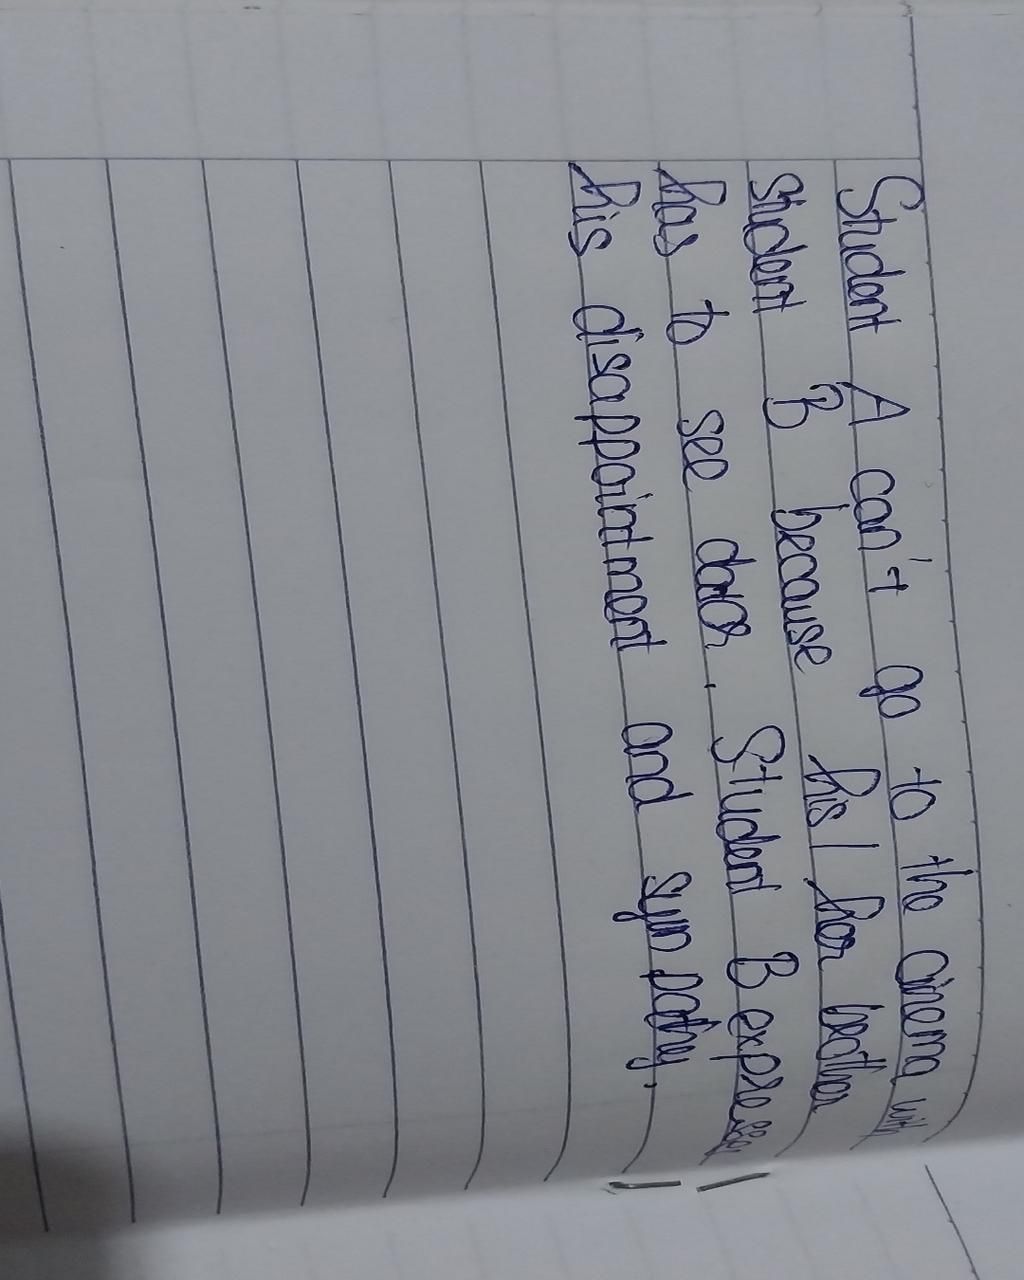 Student A can't go to the cinema with
student B because his / her brother
has to see doctor. Student B expresses
his disappointment and sympathy.